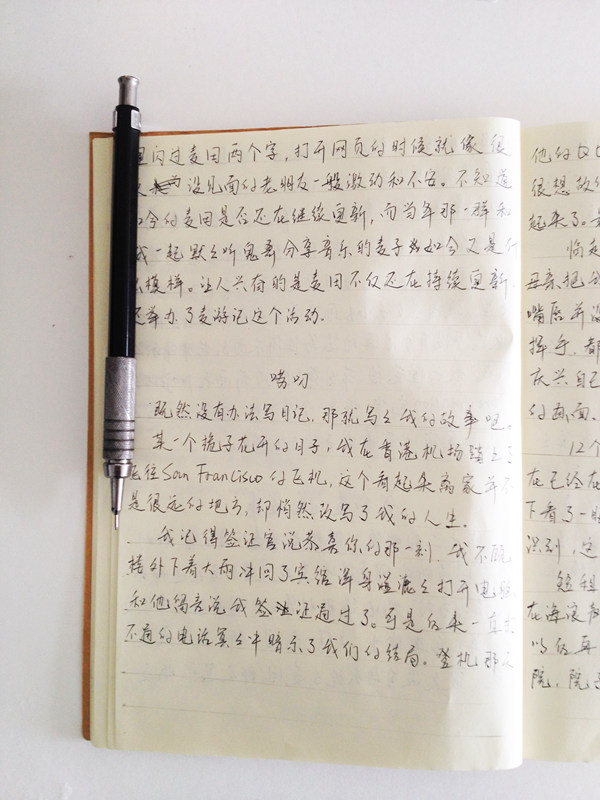 里闪过麦田两个字，打开网页的时候就像很
没见面的老朋友一般激动和不安。不知道
如今的麦田是否还在继续更新，而当年那一群和
我一起默默听鬼哥分享音乐的麦子们如今又是什
么模样。让人兴奋的是麦田不仅还在持续更新
还举办了麦游记这个活动.
唠叨
既然没有办法写日记，那就写写我的故事吧。
某一个栀子花开的日子，我在香港机场踏上了
飞往San Francisco的飞机，这个看起来离家并不
是很远的地方，却悄然改写了我的人生。
我记得签证官说恭喜你的那一刻，我不顾
楼外下着大雨冲回了宾馆浑身湿漉漉打开电脑
和他留言说我签证还通过了。可是后来一直打
不通的电话冥冥中暗示了我们的结局。登机那
他的QQ
很想放
起来了。
临走
母亲把
嘴唇并没
挥手，都
庆兴自己
的画面.
12个
在已经在
下看了一
识别，这
短租
在海滚
以后再
院，院子